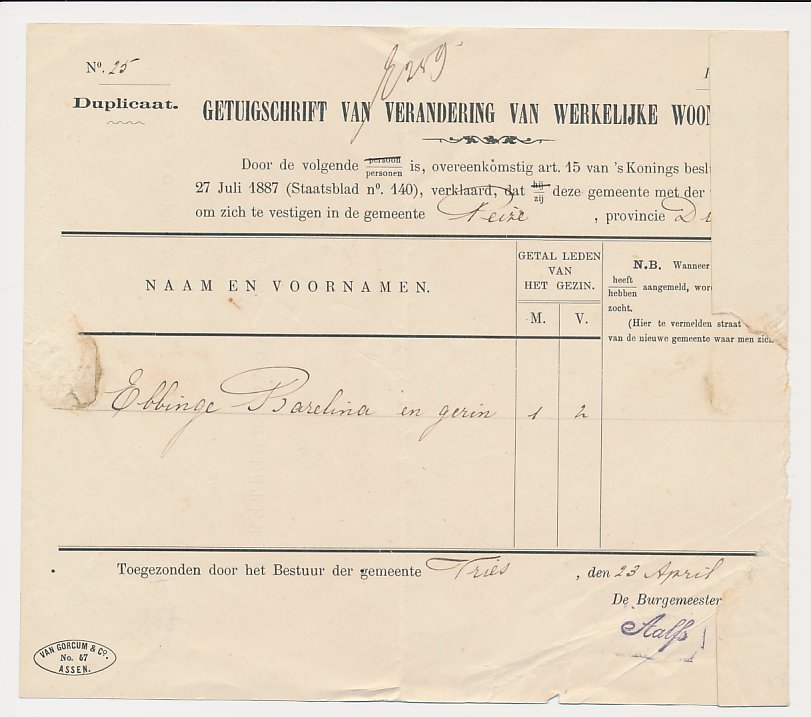 No. 25
Duplicaat.
GETUIGSCHRIFT VAN VERANDERING VAN WERKELIJKE WOON
Door de volgende persoon personen is, overeenkomstig art. 15 van 's Konings besl
27 Juli 1887 (Staatsblad no. 140), verklaard, dat hij zij deze gemeente met der
om zich te vestigen in de gemeente Peize, provincie D
NAAM EN VOORNAMEN.
GETAL LEDEN
VAN
HET GEZIN.
M. V.
N.B. Wanneer
heeft hebben aangemeld, wor
zocht.
(Hier te vermelden straat
van de nieuwe gemeente waar men zich
Ebbinge Barelina en gezin 1 2
Toegezonden door het Bestuur der gemeente Vries, den 23 April
De Burgemeester
Aalfs
VAN GORCUM & Co.
No. 67
ASSEN.